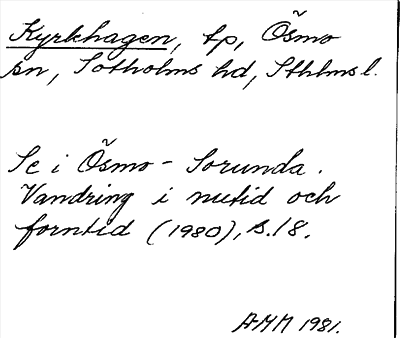 Kyrkhagen, tp, Ösmo
sn, Sotholms hd, Sthlms l.
Se i Ösmo - Sorunda.
Vandring i nutid och
forntid (1980), s. 18.
AMM 1981.